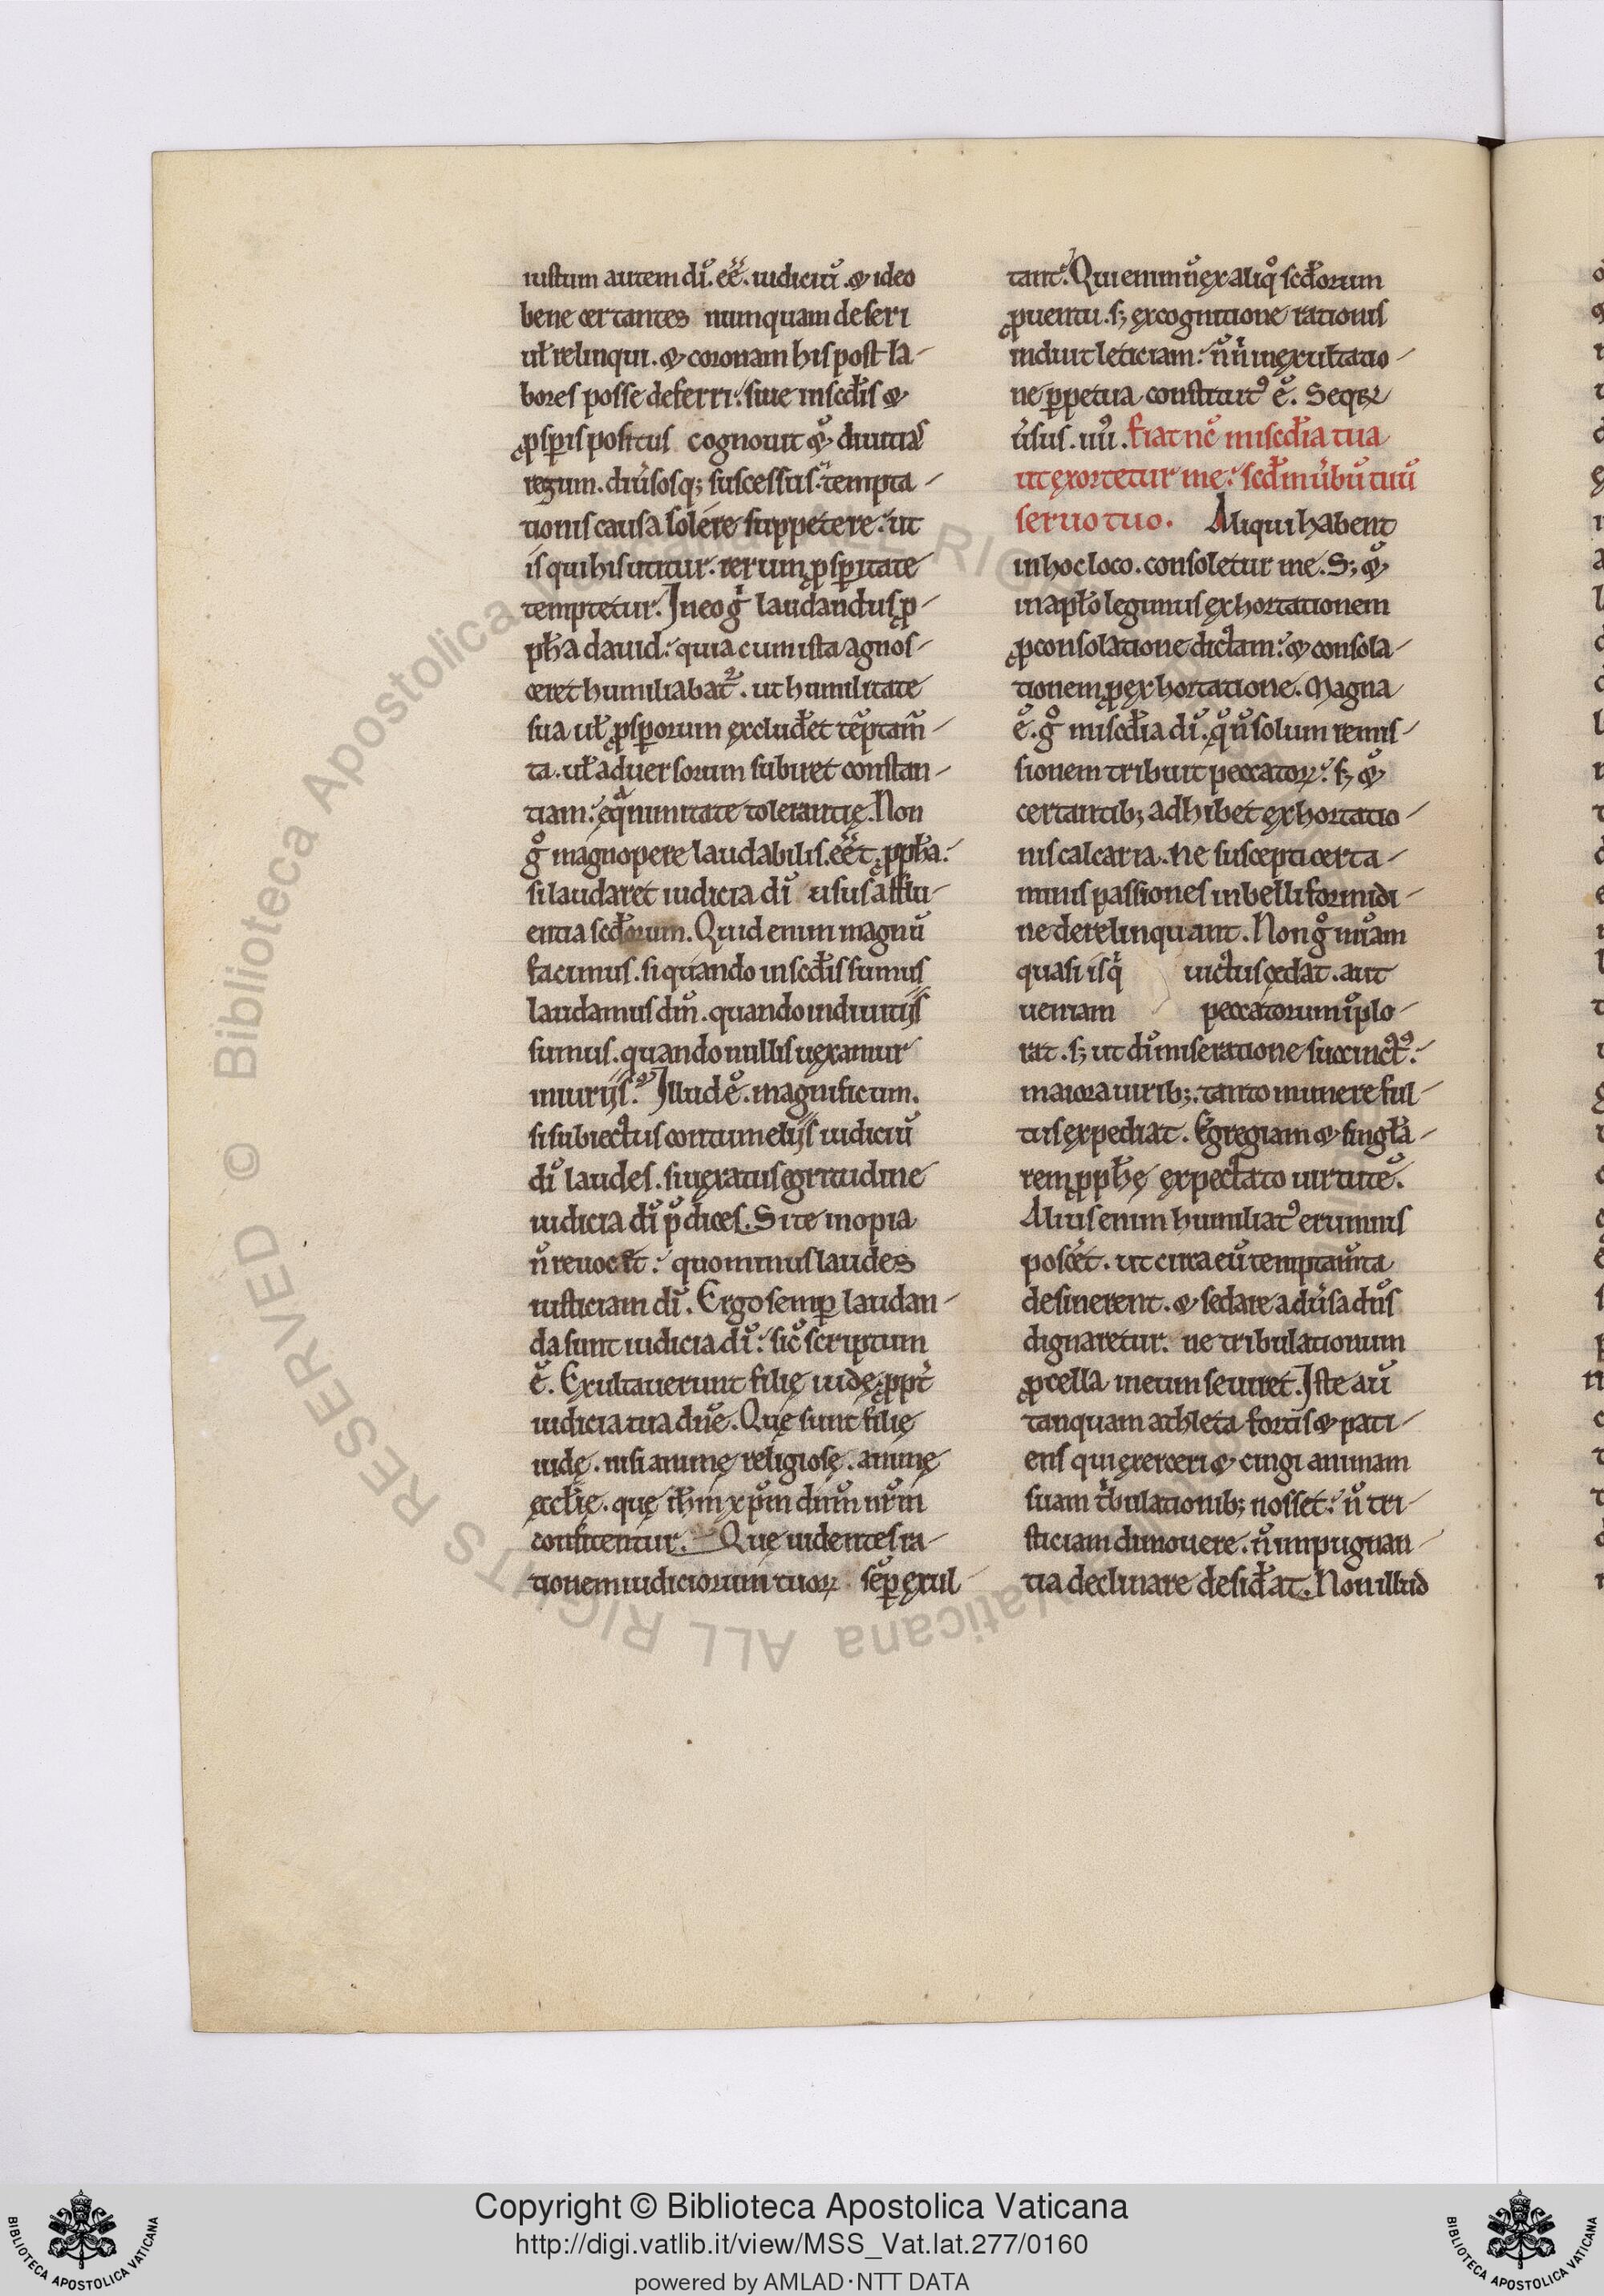 iustum autem dī. eē. iudiciū. & ideo
bene certantes numquam deseri
uł relinqui. & coronam his post la-
bores posse deferri. siue in scđis &
ꝓsꝑis positus cognouit qđ diuitias
regum. diūsosq; suscessus. tempta-
tionis causa solere suppetere. ut
is qui his utitur. rerum ꝓsꝑitate
temptetur. In eo gͥ laudandus ꝓ-
pħa dauid. quia cum ista agnos-
ceret humiliabat᷑. ut humilitate
sua uł ꝓsꝑorum excludet tēptam̄-
ta. uł aduersorum subiret constan-
tiam. eqͣnimitate tolerantię. Non
gͦ magnopere laudabilis. eēt ꝓpħa.
si laudaret iudicia dī usus afflu-
entia scđorum. Quid enim magnū
facimus. si quando in scđis sumus
laudamus dm̄. quando in diuitijs
sumus. quando nullis uexamur
iniurijs. Illud ē. magnificum.
si subiectus contumelijs iudiciū
dī laudes. si uexatus egritudine
iudicia dī p̄dices. Si te inopia
n̄ reuocet. quominus laudes
iusticiam dī. Ergo semꝑ laudan-
da sunt iudicia dī. sic̄ scriptum
ē. Exultauerunt filię iudę ꝓpt̄
iudicia tua dn̄e. Quę sunt filię
iudę. nisi animę religiosę. animę
ęccłię. quę ih̄m xp̄m dnm̄ nr̄m
confitentur. Quę uidentes ra-
tionem iudiciorum tuoꝝ seꝑ exul-
tant. Qui enim n̄ ex aliqͦ scđorum
ꝓuentu. s; ex cognitione rationis
induit leticiam. n̄n̄ in exultatio-
ne ꝑpetua constitutꝰ ē. Seqͥꝝ
ūsus. iiii. Fiat nc̄ misc̄dia tua
ut exortetur me. scđm ūbū tuū
seruo tuo. Aliqui habent
in hoc loco. consoletur me. S; &
in apło legimus exhortationem
ꝓ consolatione dictam. & consola-
tionem ꝓ exhortatione. Magna
ē. gͦ misc̄dia dī. q̄ n̄ solum remis-
sionem tribuit peccatoꝝ. s; &
certantib; adhibet exhortatio-
nis calcaria. ne suscepti certa-
minis passiones in belli formidi-
ne derelinquant. Non gͦ nūam
quasi is qͥ uictus cedat. aut
ueniam peccatorum īplo-
rat. s; ut dī miseratione succinctꝰ.
maiora uirib;. tanto munere ful-
tus expediat. Egregiam & singła-
rem ꝓpħę expectato uirtutē.
Alius enim humiliatꝰ erumnis
posc̄et. ut circa eū temptam̄ta
desinerent. & sedare adūsa dn̄s
dignaretur. ne tribulationum
ꝓcella in eum seuiret. Iste aū
tanquam athleta fortis & pati-
ens qui exerceri & cingi animam
suam tͥbulationib; nosset. n̄ tri-
sticiam dimouere. n̄ inpugnan-
tia declinare desid̄at. Non illud
Copyright © Biblioteca Apostolica Vaticana
http://digi.vatlib.it/view/MSS_Vat.lat.277/0160
powered by AMLAD·NTT DATA
BIBLIOTECA APOSTOLICA VATICANA
BIBLIOTECA APOSTOLICA VATICANA